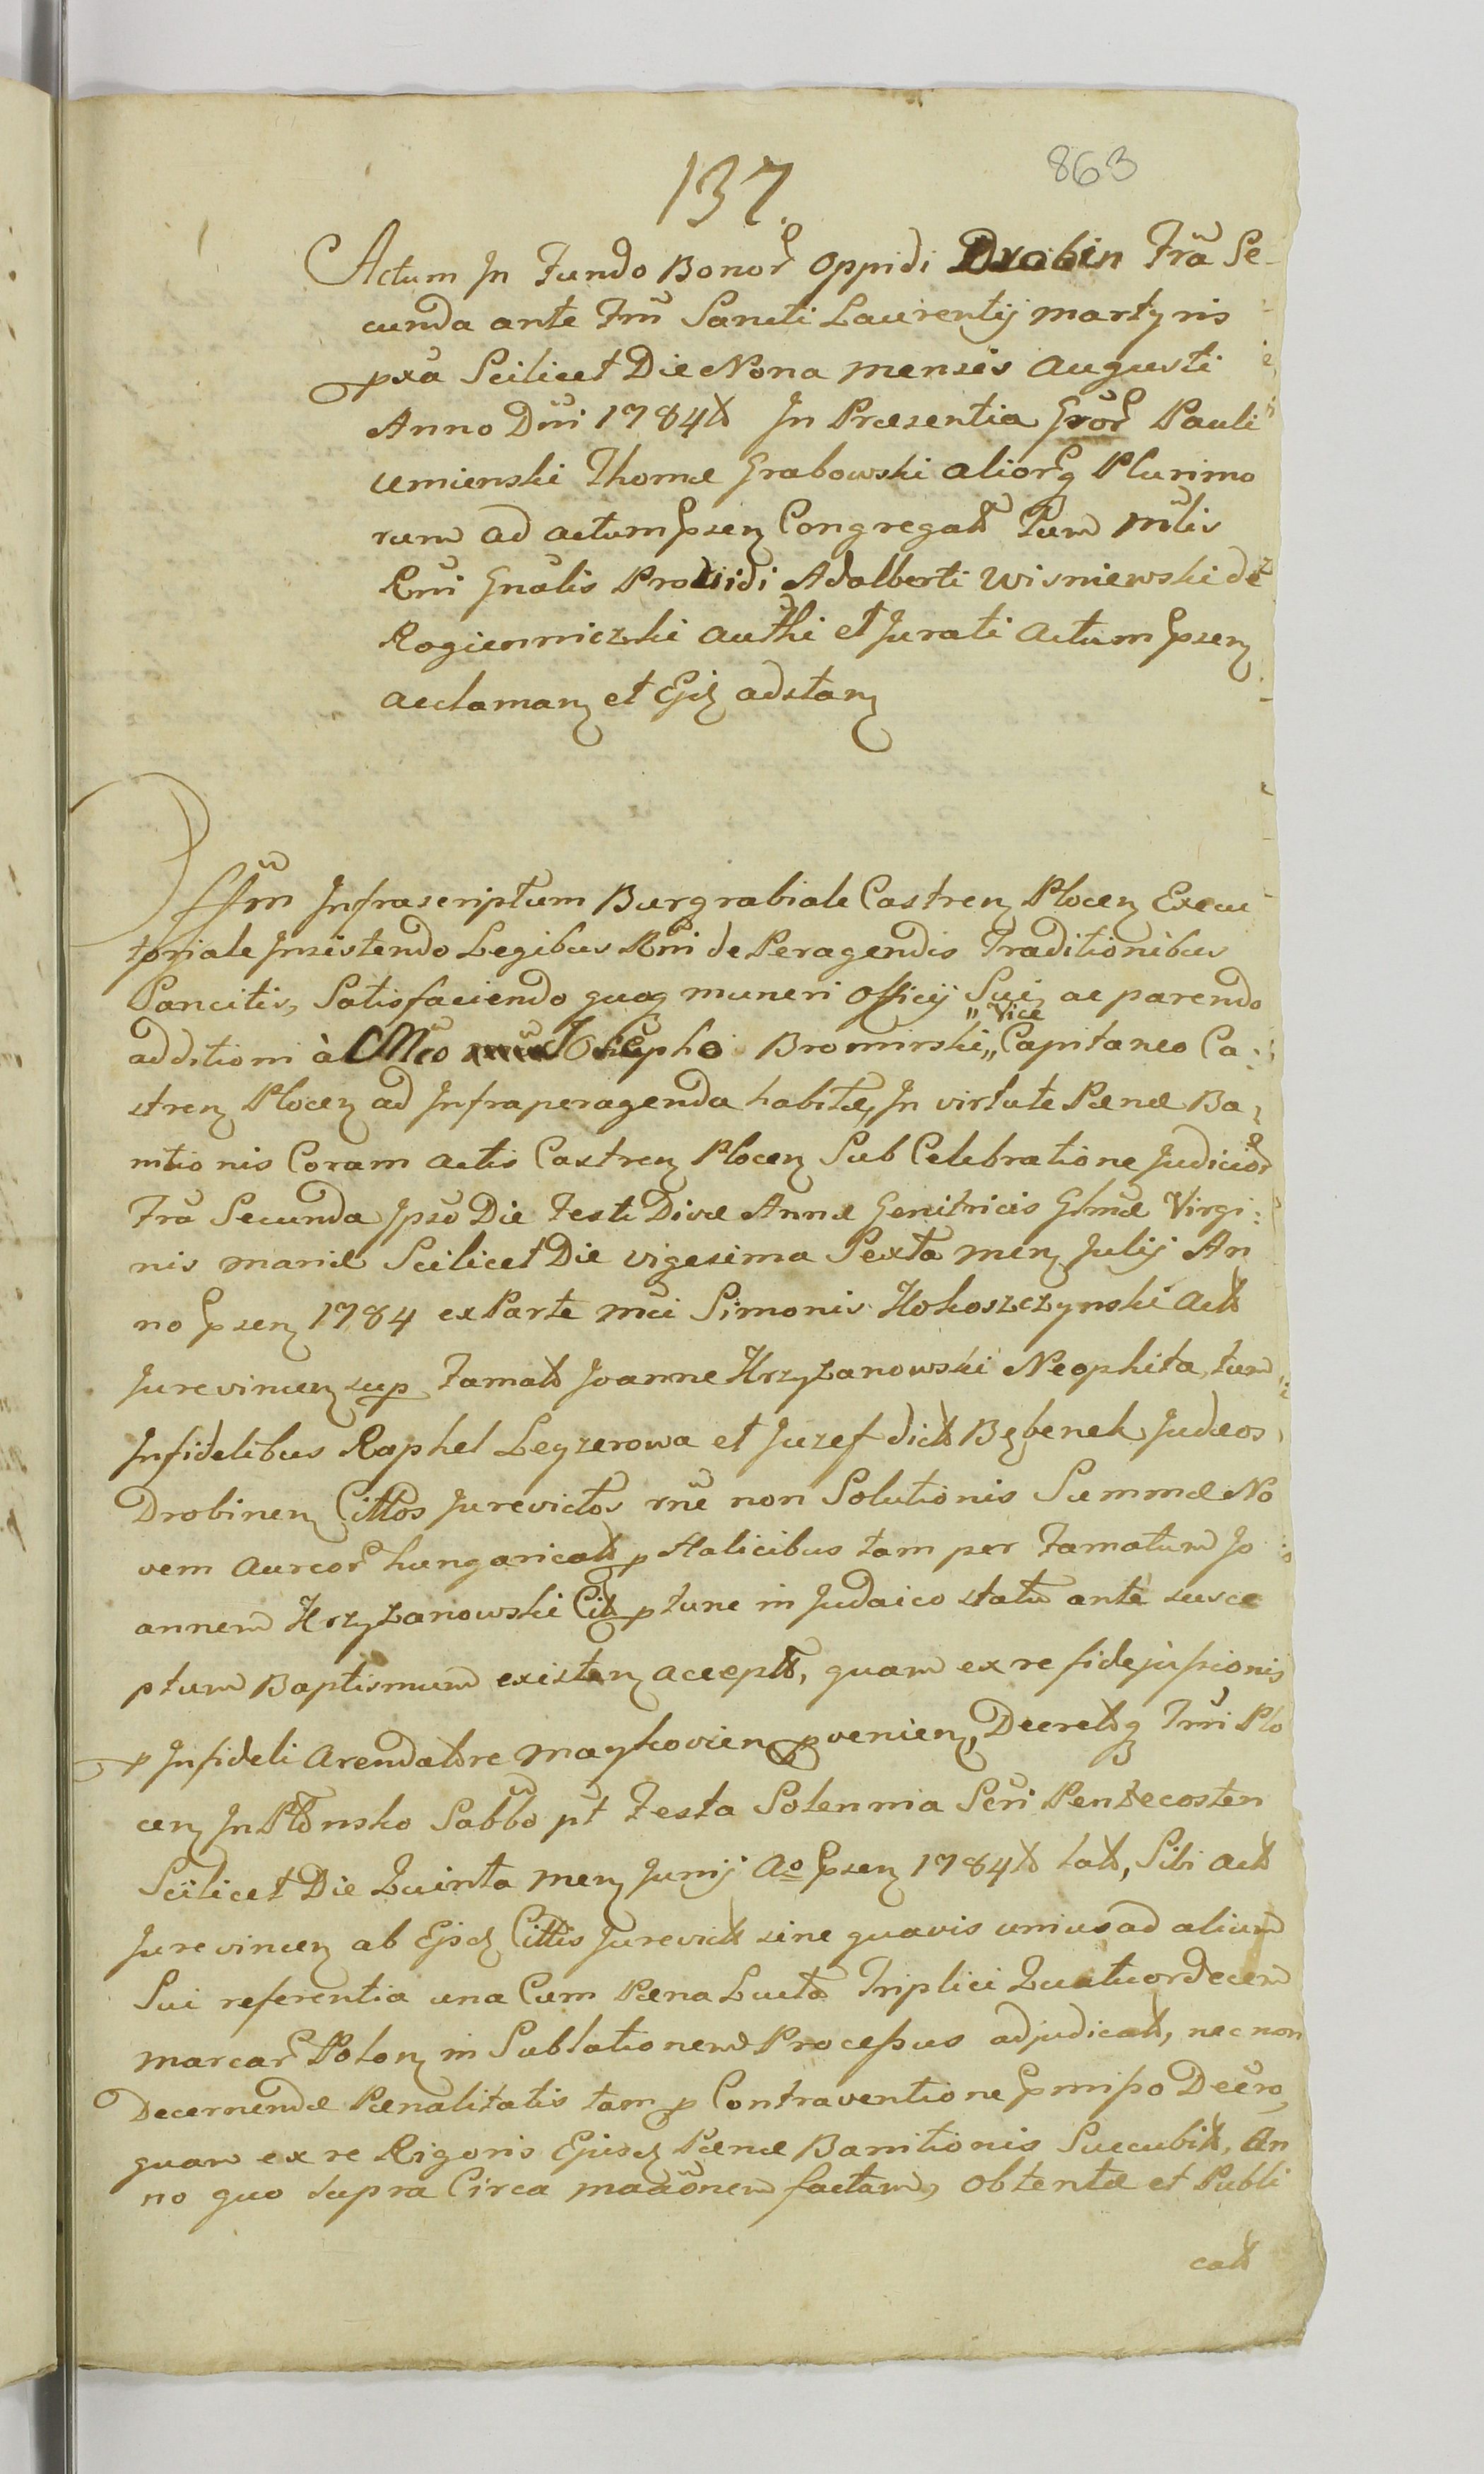 137.
863
Actum In Fundo Bonor oppidi Drobin Fra Se-
cunda ante Ftm Sancti Laurentij martyris
pxa Scilicet Die Nona mensis Augusti
Anno Dni 1784tt In Præsentia Gror Pauli
Umienski Thomæ Grabowski aliorq Plurimo
rum ad actum Psen Congregatt Tum Mtlis
Rni Gnalis Providi Adalberti Wisniewski de
Rogienniczki authi et Jurati Actum Psen
acclaman et Ejd adstan
Offm Infrascriptum Burgrabiale Castren Plocen Execu
toriale Insistendo Legibus Rni de Peragendis Traditionibus
Sancitis, Satisfaciendo quoq muneri Officij Sui, ac parendo
additioni à Mco Josepho Bromirski „Vice Capitaneo Ca:
stren Plocen ad Infraperagenda habitæ, In virtute Pænæ Ba,
nitionis Coram Actis Castren Plocen Sub Celebratione Judicior
Fra Secunda Ipso Die Festi Divæ Annæ Genitricis Glmæ Virgi:
nis mariæ Scilicet Die vigesima Sexta men Julij An
no Psen 1784 ex Parte mci Simonis Kokoszczynski Actt
Jurevincen sup Famatt Joanne Krzyżanowski Neophita, tum
Infidelibus Raphel Leyzerowa et Juzef dictt Bębenek Judæos
Drobinen Cittos Jurevictos rne non Solutionis Summæ No
vem Aureor hungaricatt p Halicibus tam per Famatum Jo
annem Krzyżanowski Citt p tunc in Judaico statu ante susce
ptum Baptismum existen acceptt, quam ex re fidejussionis
p Infideli Arendatore maykovien pvenien, Decretoq Trni Plo
cen In Płonsko Sabbo pt Festa Solennia Scri Pentecosten
Scilicet Die Quinta men Junij Ao Psen 1784tt latt, Sibi Actt
Jurevincen ab Ejsd Cittis Jurevictt sine quavis unius ad alium
Sui referentia una Cum Pæna Lucta Triplici Quatuordecem
marcar Polon in Sublationem Processus adjudicatt, nec non
Decernendæ Pænalitatis tam p Contraventione Pmisso Decro,
quam ex re Rigoris Ejusd Pænæ Banitionis Succubitt, An
no quo supra Circa maaonem factam, obtentæ et Publi
catt